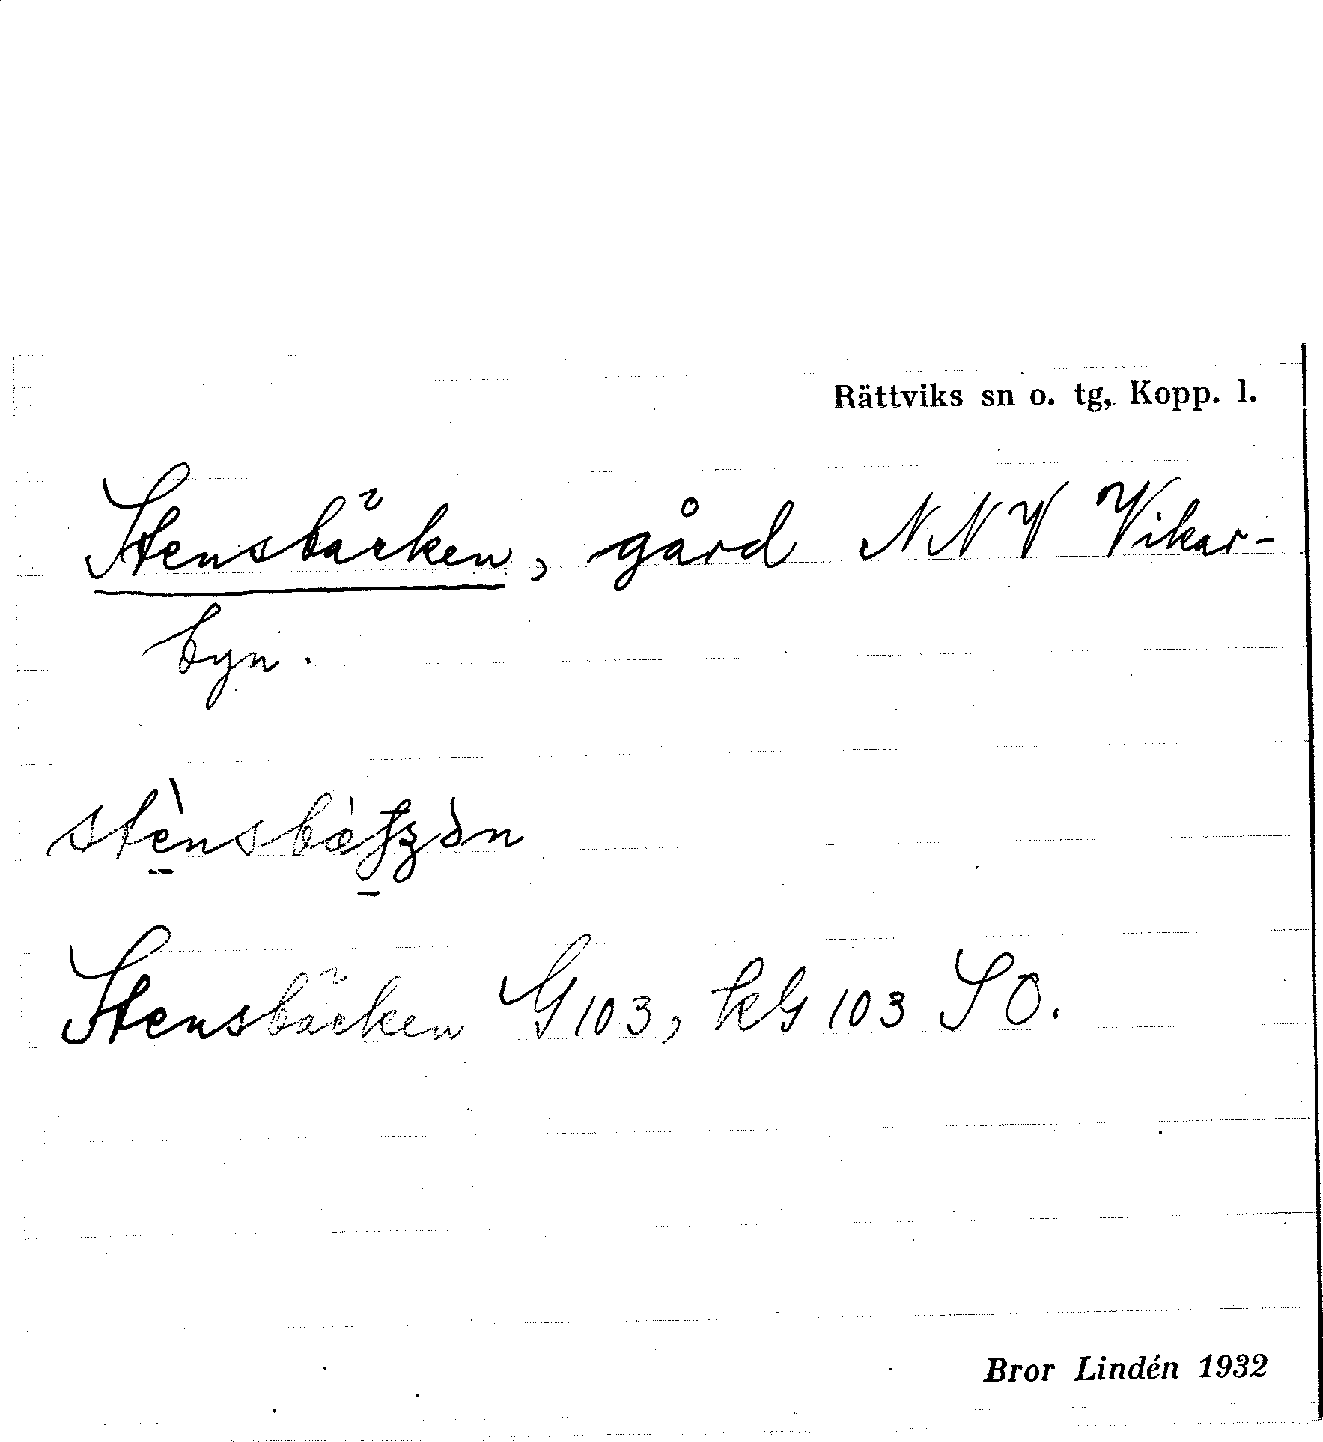 Rättviks sn o. tg, Kopp. l.
Stensbäcken, gård NNV Vikar-
byn.
Stensbäcken G 103, kG 103 SO.
Bror Lindén 1932